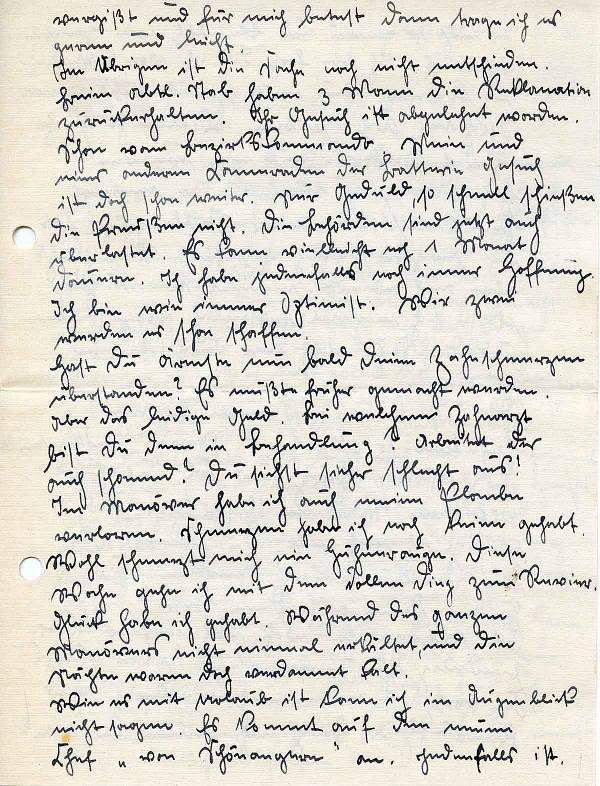 vergißt und für mich betest dann trage ich es
gerne und leicht.
Im Übrigen ist die Sache noch nicht entschieden.
Beim Abtl. Stab haben 3 Mann die Reklamation
zurückerhalten. Ihr Gesuch ist abgelehnt worden.
Schon vom Bezirkskommando. Mein und
eines anderen Kameraden der Batterie Gesuch
ist doch schon weiter. Nur Geduld, so schnell schießen
die Preußen nicht. Die Behörden sind jetzt auch
überlastet. Es kann vielleicht noch 1 Monat
dauern. Ich habe jedenfalls noch immer Hoffnung.
Ich bin wie immer Optimist. Wir zwei
werden es schon schaffen.
Hast Du Ärmste nun bald Deine Zahnschmerzen
überstanden? Es müßte früher gemacht werden.
Aber das leidige Geld. Bei welchem Zahnarzt
bist Du denn in Behandlung? Arbeitet der
auch schonend? Du siehst sicher schlecht aus!
Im Manöver habe ich auch meine Plombe
verloren. Schmerzen habe ich noch keine gehabt.
Wohl schmerzt mich ein Hühnerauge. Diese
Woche gehe ich mit dem tollen Ding zum Revier.
Glück habe ich gehabt. Während des ganzen
Manövers nicht einmal erkältet, und die
Nächte waren doch verdammt kalt.
Wie es mit Urlaub ist kann ich im Augenblick
nicht sagen. Es kommt auf den neuen
Chef „von Schönangern" an. Jedenfalls ist.